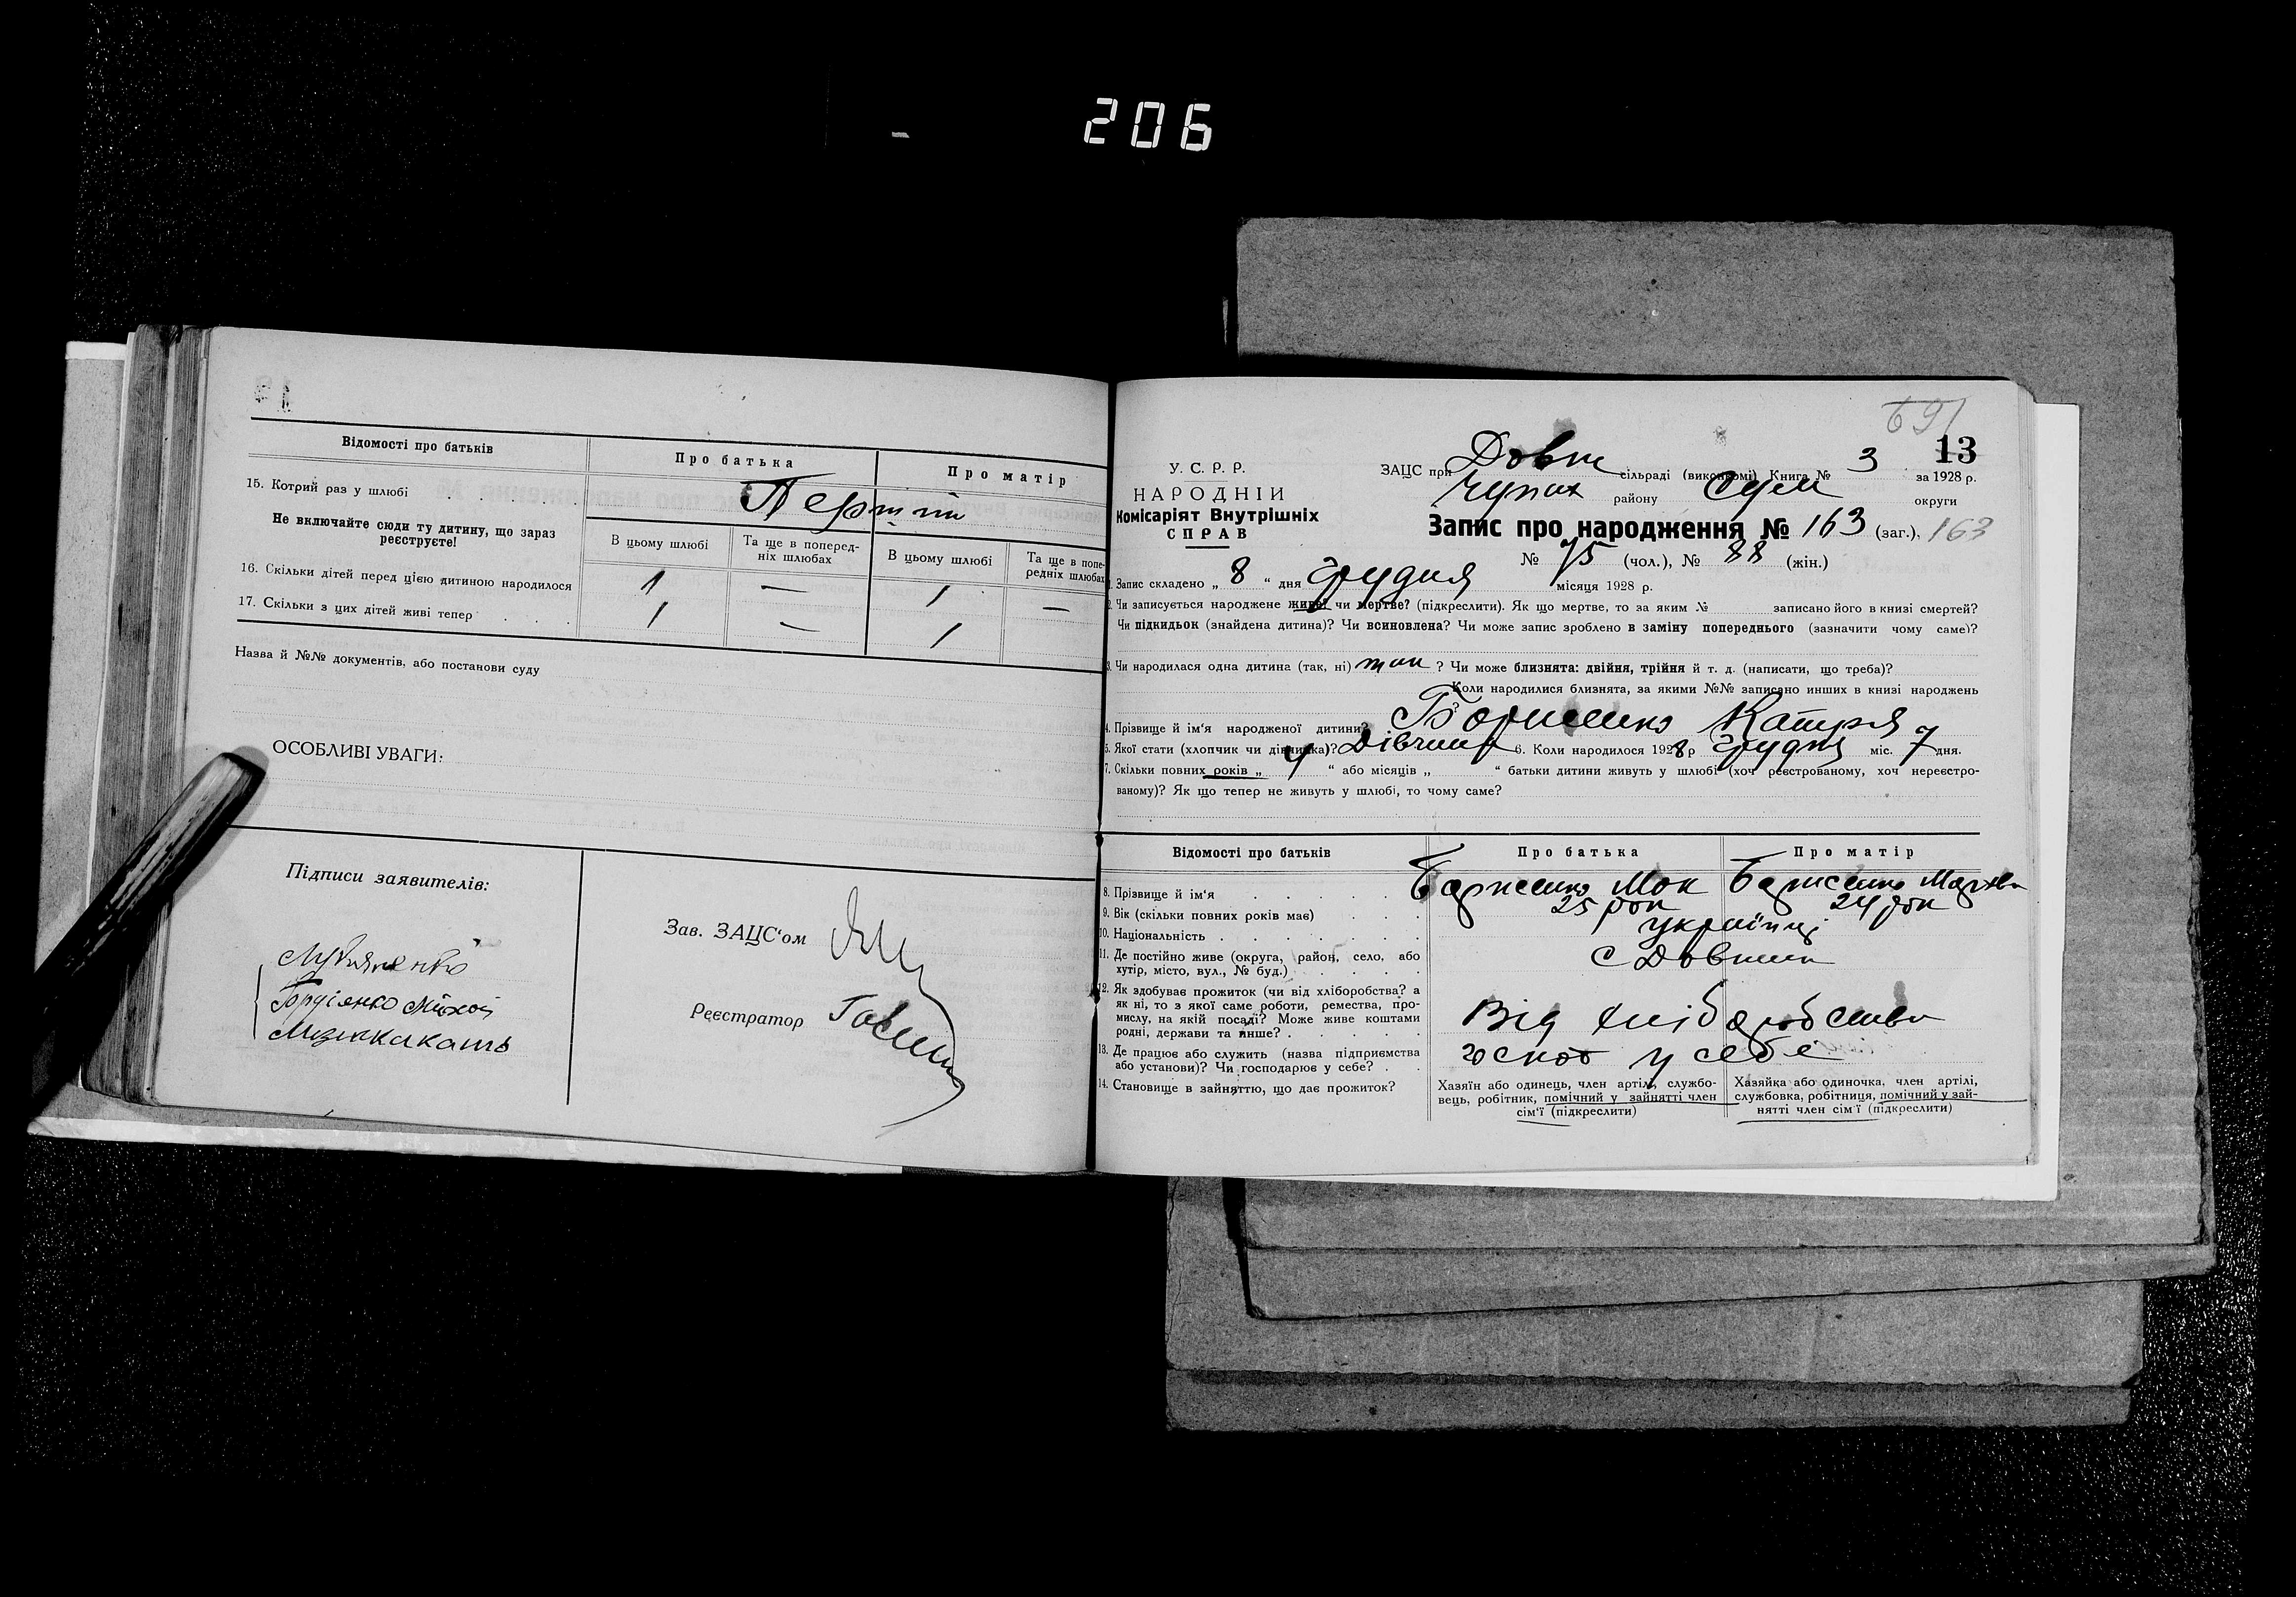 206
Відомості про батьків
Про батька
Про матір
15. Котрий раз у шлюбі
Перший
Не включайте сюди ту дитину, що зараз
реєструєте!
В цьому шлюбі
Та ще в поперед-
ніх шлюбах
В цьому шлюбі
Та ще в попе-
редніх шлюбах
16. Скільки дітей перед цією дитиною народилося 1 — 1 —
17. Скільки з цих дітей живі тепер . . . 1 — 1
Назва й №№ документів, або постанови суду
ОСОБЛИВІ УВАГИ:
Підписи заявителів:
Зав. ЗАЦС‘ом
Реєстратор
691
13
У. С. Р. Р.
НАРОДНІЙ
Комісаріят Внутрішніх
СПРАВ
ЗАЦС при Довж сільраді (виконкомі) Книга № 3 за 1928 р.
Чупах району Сум округи
Запис про народження № 163 (заг.), 163
№ 75 (чол.), № 88 (жін.)
1. Запис складено „ 8 “ дня грудня місяця 1928 р.
2. Чи записується народжене живе? чи мертве? (підкреслити). Як що мертве, то за яким № записано його в книзі смертей?
Чи підкидьок (знайдена дитина)? Чи всиновлена? Чи може запис зроблено в заміну попереднього (зазначити чому саме)?
3. Чи народилася одна дитина (так, ні) так ? Чи може близнята: двійня, трійня й т. д. (написати, що треба)?
Коли народилися близнята, за якими №№ записано инших в книзі народжень
?
4. Прізвище й ім‘я народженої дитини? Борисенко Катря
5. Якої стати (хлопчик чи дівчинка)? Дівчина 6. Коли народилося 1928 р грудня міс. 7 дня.
7. Скільки повних років „ 4 “ або місяців „ “ батьки дитини живуть у шлюбі (хоч реєстрованому, хоч нереєстро-
ваному)? Як що тепер не живуть у шлюбі, то чому саме?
Відомості про батьків
Про батька
Про матір
8. Прізвище й ім‘я . . . . . Борисенко Мок Борисенко
9. Вік (скільки повних років має) . . . 25 рок 24 рок
10. Національність . . . . . . . українці
11. Де постійно живе (округа, район, село, або
хутір, місто, вул., № буд.) . . . .
с Довжик
12. Як здобуває прожиток (чи від хліборобства? а
як ні, то з якої саме роботи, ремества, про-
мислу, на якій посаді? Може живе коштами
родні, держави та инше? . . . . .
Від хліборобства
13. Де працює або служить (назва підприємства
або установи)? Чи господарює у себе? . .
госпо у себе
14. Становище в зайняттю, що дає прожиток?
Хазяїн або одинець, член артілі, службо-
вець, робітник, помічний у зайнятті член
сім‘ї (підкреслити)
Хазяйка або одиночка, член артілі,
службовка, робітниця, помічний у зай-
нятті член сім‘ї (підкреслити)